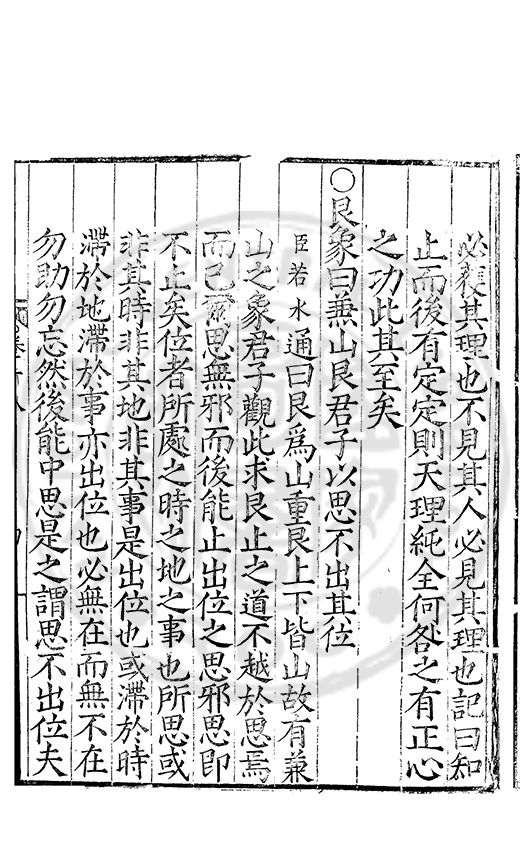 必裂其理也不見其人必見其理也記曰知
止而後有定定則天理純全何咎之有正心
之功此其至矣
○艮象曰兼山艮君子以思不出其位
臣若水通曰艮爲山重艮上下皆山故有兼
山之象君子觀此求艮止之道不越於思焉
而已爾思無邪而後能止出位之思邪思即
不止矣位者所處之時之地之事也所思或
非其時非其地非其事是出位也或滯於時
滯於地滯於事亦出位也必無在而無不在
勿助勿忘然後能中思是之謂思不出位夫